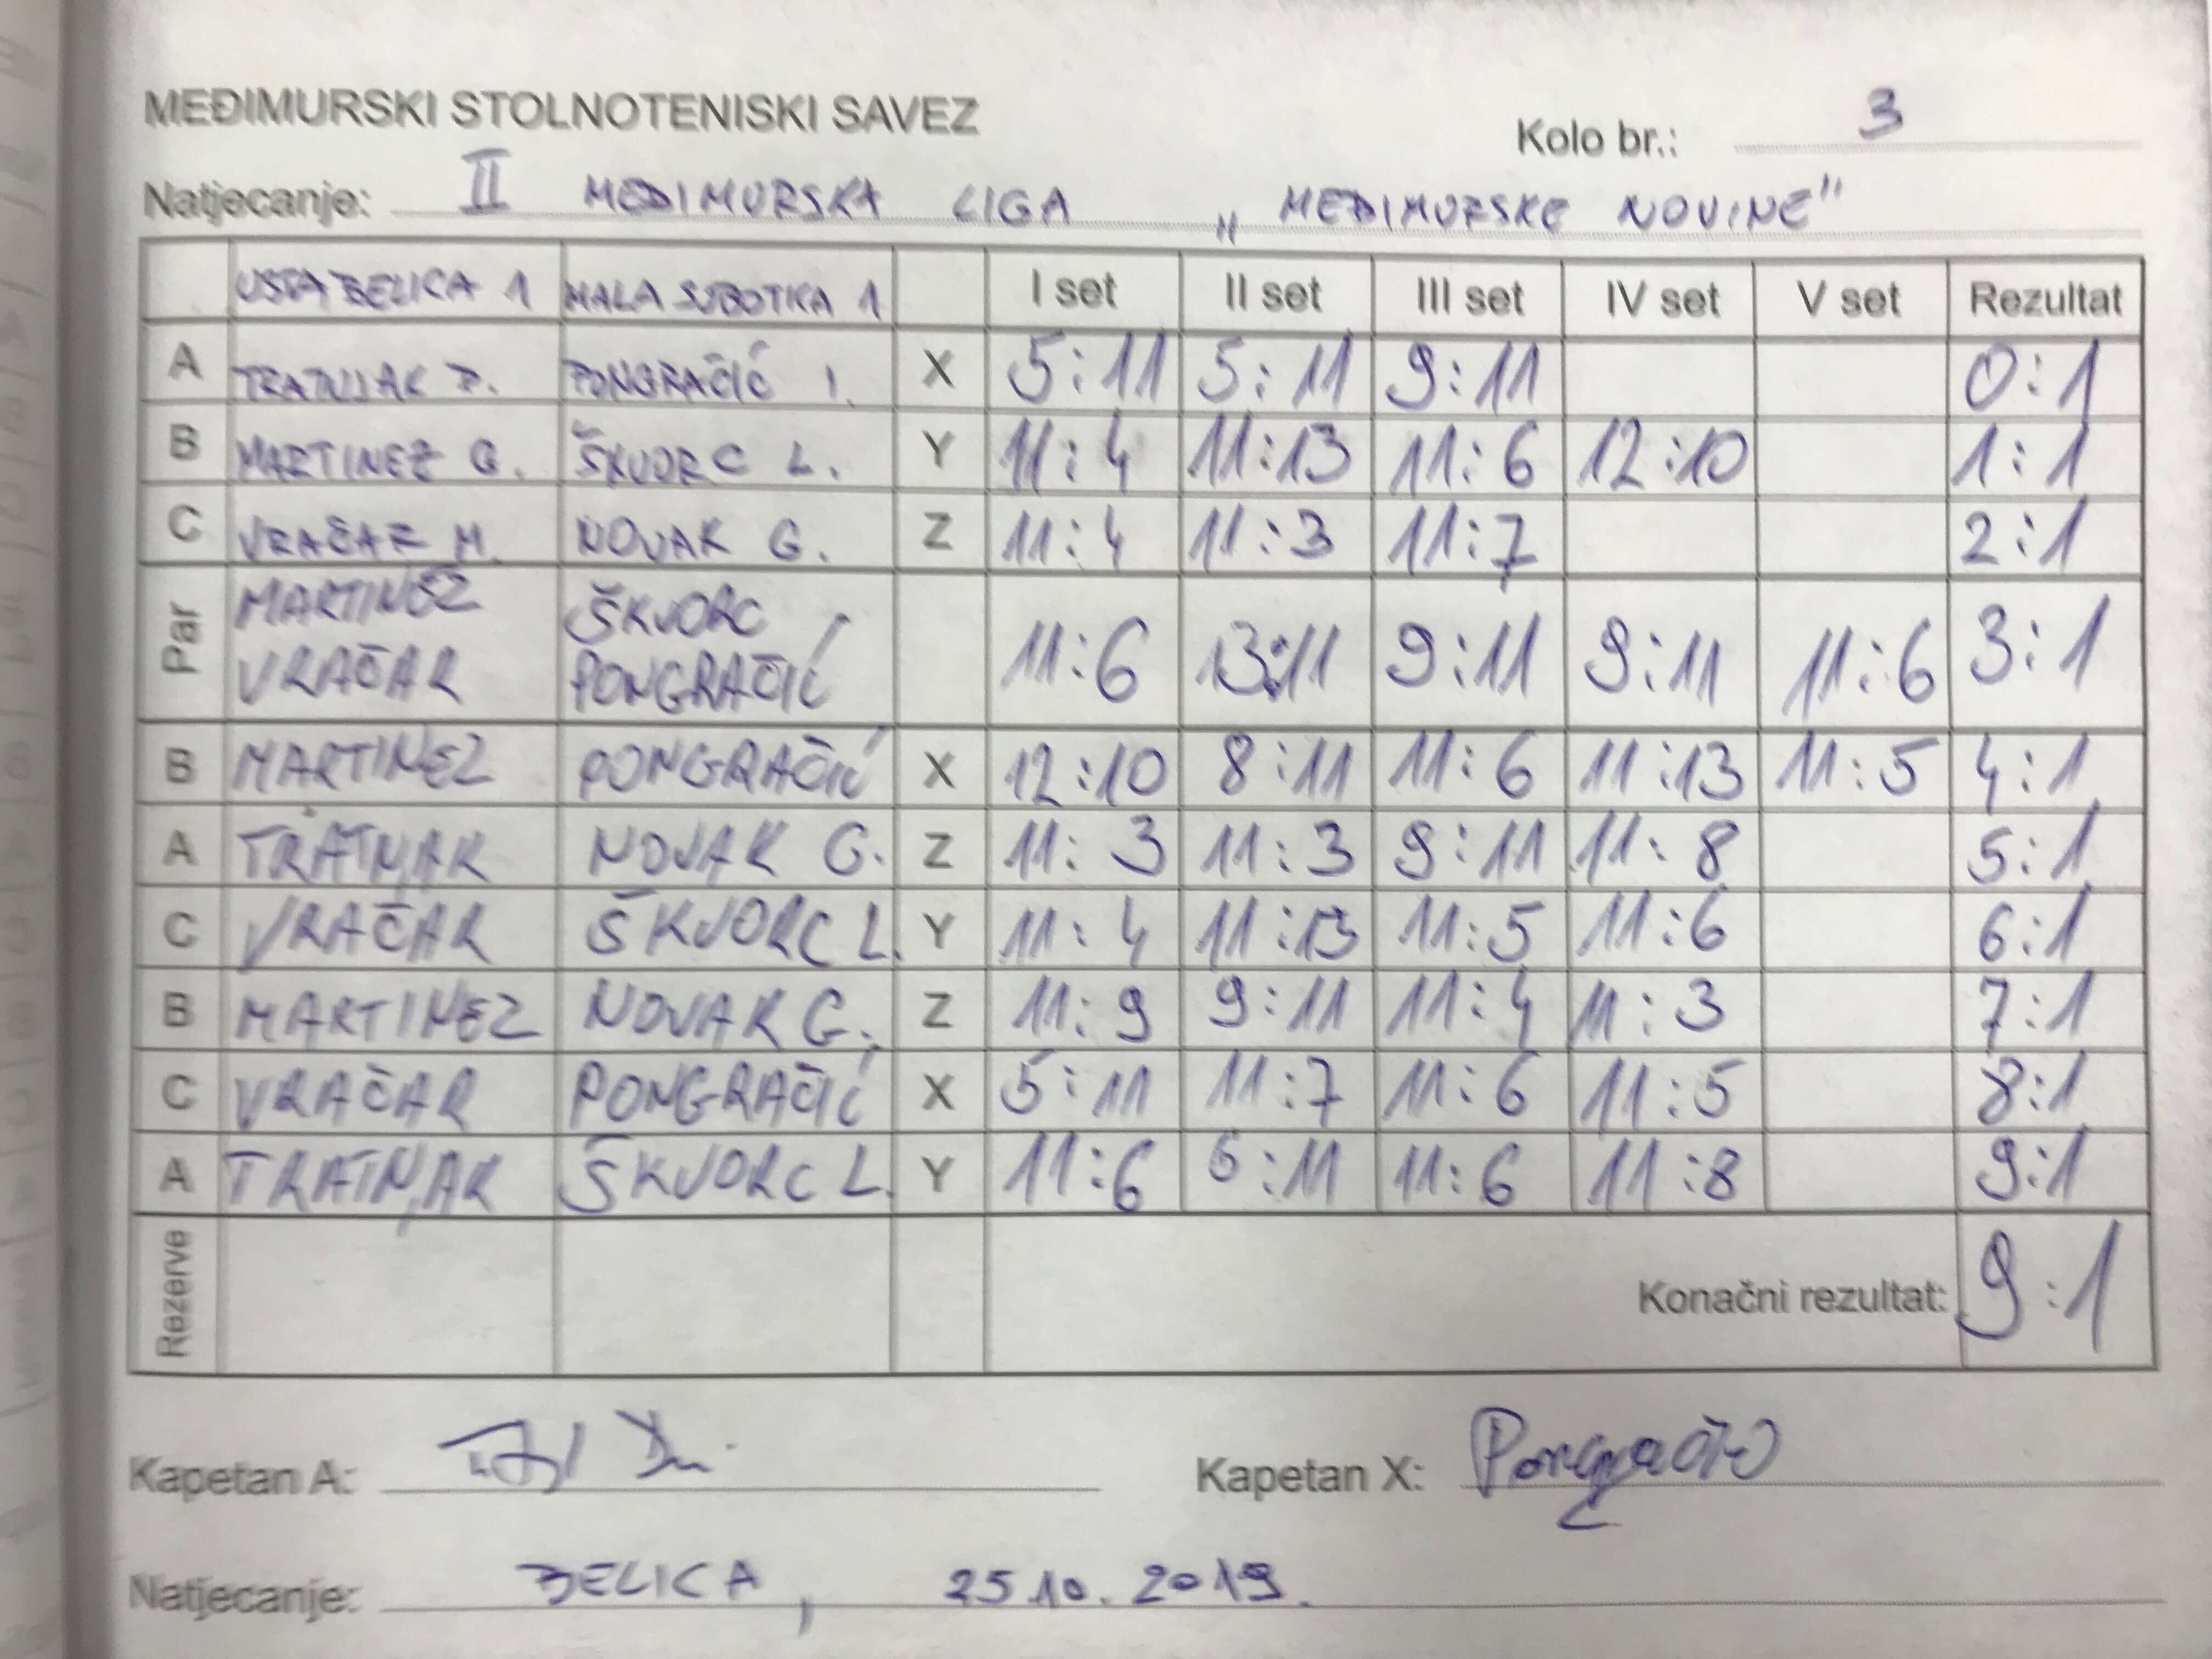 MEĐIMURSKI STOLNOTENISKI SAVEZ
Kolo br.: 3
Natjecanje: II MEĐIMURSKA LIGA „MEĐIMURSKE NOVINE"
USTA BELICA 1 MALA SUBOTICA 1 I set II set III set IV set V set Rezultat
A TRATNJAK D. PONGRAČIĆ I. X 5:11 5:11 9:11 0:1
B MARTINEZ G. ŠKVORC L. Y 11:4 11:13 11:6 12:10 1:1
C VRAČAR M. NOVAK G. Z 11:4 11:3 11:7 2:1
Par MARTINEZ VRAČAR ŠKVORC PONGRAČIĆ 11:6 13:11 9:11 9:11 11:6 3:1
B MARTINEZ PONGRAČIĆ X 12:10 8:11 11:6 11:13 11:5 4:1
A TRATNJAK NOVAK G. Z 11:3 11:3 9:11 11:8 5:1
C VRAČAR ŠKVORC L. Y 11:4 11:13 11:5 11:6 6:1
B MARTINEZ NOVAK G. Z 11:9 9:11 11:4 11:3 7:1
C VRAČAR PONGRAČIĆ X 5:11 11:7 11:6 11:5 8:1
A TRATNJAK ŠKVORC L. Y 11:6 6:11 11:6 11:8 9:1
Rezerve Konačni rezultat: 9:1
Kapetan A: Kapetan X: Pongračić
Natjecanje: BELICA, 25.10.2019.